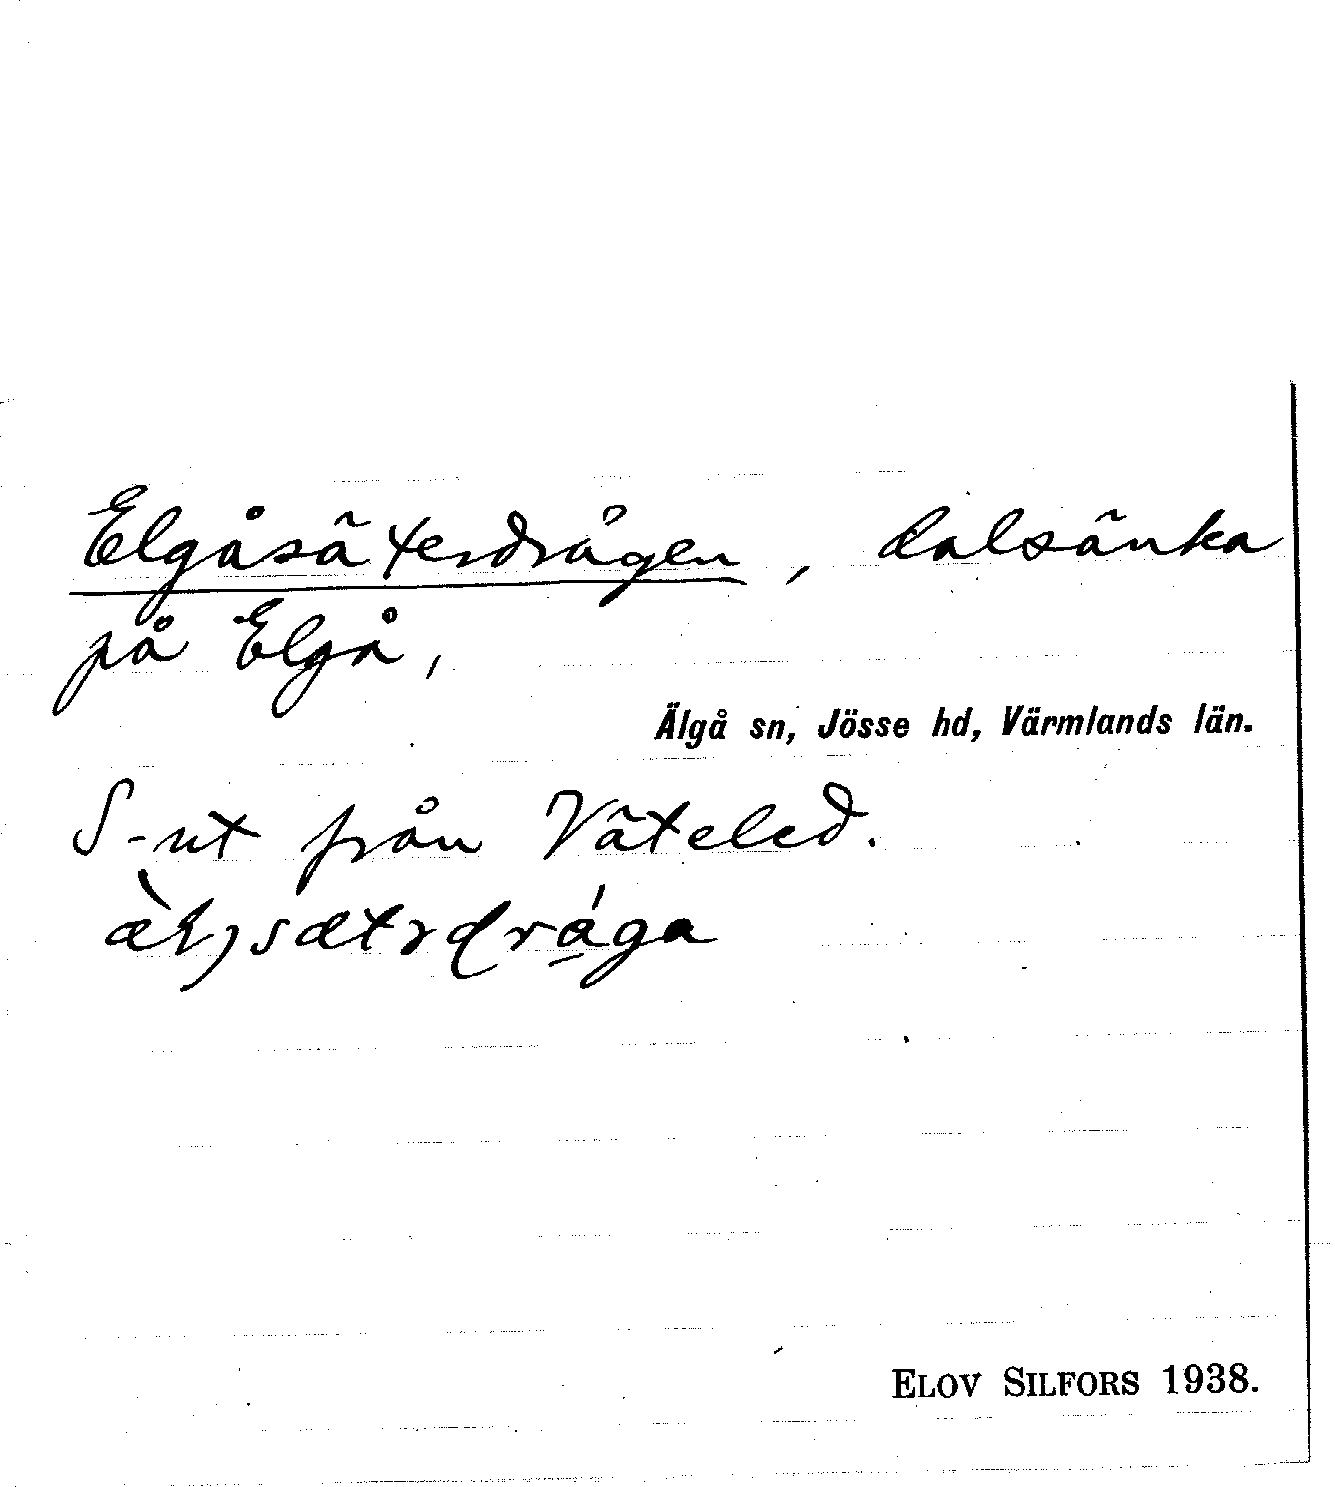 Elgåsäterdrågen, dalsänka
på Elgå,
Älgå sn, Jösse hd, Värmlands län.
S-ut från Väteled.
ELOV SILFORS 1938.